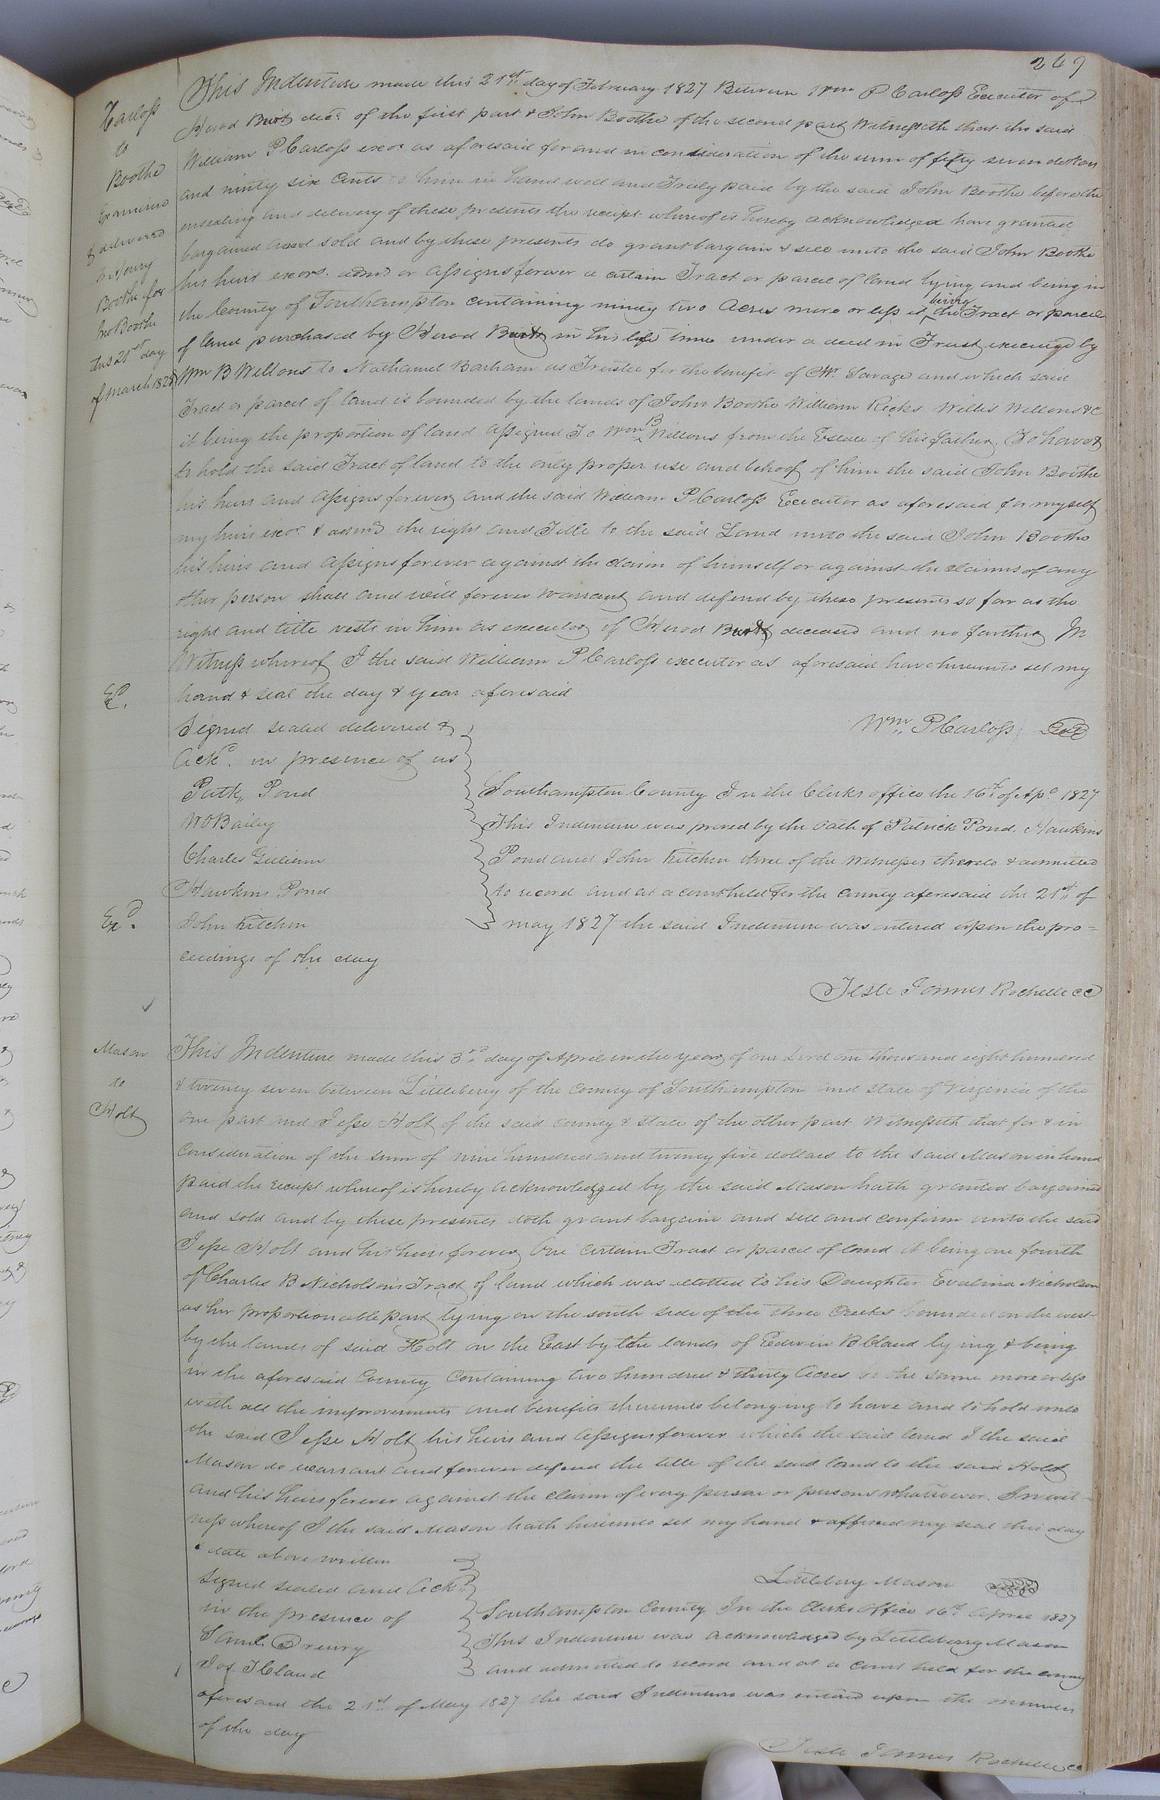 269
Carloss
to
Boothe
Examined
& delivered
to Henry
Boothe for
Jno Boothe
this 21st day
of March 1828
This Indenture made this 21st day of February 1827 Between Wm P Carloss Executor of
Herod decd of the first part & John Boothe of the second part Witnesseth that the said
William P Carloss exor as aforesaid for and in consideration of the sum of fifty seven dollars
and ninety six Cents to him in hand well and Truly paid by the said John Boothe before the
ensealing and delivery of these presents the receipt whereof is hereby acknowledged have granted
bargained and sold and by these presents do grant bargain & sell unto the said John Boothe
his heirs exors. admrs or assigns forever a certain Tract or parcel of land lying and being in
the County of Southampton containing ninety two Acres more or less it being the Tract or parcel
of land purchased by Herod in his life time under a deed in Trust executed by
Wm B Wellons to Nathaniel Barham as Trustee for the benefit of Savage and which said
Tract or parcel of land is bounded by the lands of John Boothe William Ricks Willis Wellons &c
it being the proportion of land assigned To Wm B Wellons from the Estate of his father, To have &
to hold the said Tract of land to the only proper use and behoof of him the said John Boothe
his heirs and assigns forever and the said William P Carloss Executor as aforesaid for myself
my heirs exor & admrs the right and Title to the said Land unto the said John Boothe
his heirs and assigns forever against the claim of himself or against the claims of any
other person shall and will forever warrant and defend by these presents so far as the
right and title vests in him as executor of Herod deceased and no farther In
Witness whereof I the said William P Carloss executor as aforesaid have hereunto set my
hand & seal the day & year aforesaid
Exd.
Signed sealed delivered &
Ackd. in presence of us
Patk. Pond
W O Bailey
Charles Gilliam
Hawkins Pond
John Kitchen
Wm. P Carloss Seal
Southampton County In the Clerks office the 16th of Apl 1827
This Indenture was proved by the oath of Patrick Pond, Hawkins
Pond and John Kitchen three of the Witnesses thereto & admitted
to record and at a court held for the county aforesaid the 21st of
may 1827 the said Indenture was entered upon the pro=
Exd.
ceedings of the day
Teste James Rochelle CC
Mason
to
Holt
This Indenture made this 3rd day of April in the year of our Lord one thousand eight hundred
& twenty seven between Littlebery of the county of Southampton and state of Virginia of the
one part and Jesse Holt of the said county & state of the other part Witnesseth that for & in
Consideration of the sum of nine hundred and twenty five dollars to the said Mason in hand
paid the receipt whereof is hereby acknowledged by the said Mason hath granted bargained
and sold and by these presents doth grant bargain and sell and confirm unto the said
Jesse Holt and his heirs forever One certain Tract or parcel of land it being one fourth
of Charles B Nicholson's Tract of land which was allotted to his Daughter Evalina Nicholson
as her proportionable part lying on the south side of the three Creeks bounded on the west
by the lands of said Holt on the East by the lands of Edwin B Claud lying & being
in the aforesaid County Containing two hundred & thirty Acres be the same more or less
with all the improvements and benefits thereunto belonging to have and to hold unto
the said Jesse Holt his heirs and assigns forever which the said land I the said
Mason do warrant and forever defend the title of the said land to the said Holt
and his heirs forever against the claim of every person or persons whatsoever. In wit
ness whereof I the said Mason hath hereunto set my hand & affixed my seal this day
& date above written
Signed sealed and Ackd
in the presence of
Saml. Drewry
Jos J Claud
Littlebery Mason Seal
Southampton County In the Clerks office 16th April 1827
This Indenture was acknowledged by Littlebery Mason
and admitted to record and at a court held for the county
aforesaid the 21st of May 1827 the said Indenture was entered upon the minutes
of the day
Teste James Rochelle CC